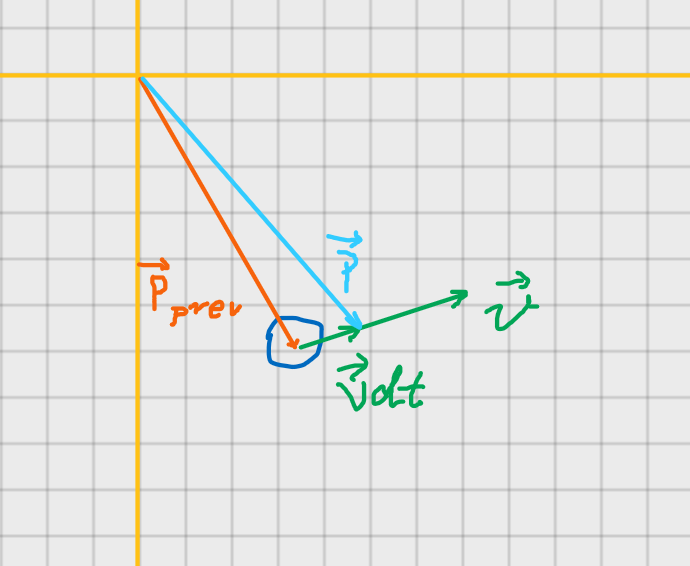 P⃗
P⃗ prev
v⃗
v⃗dt